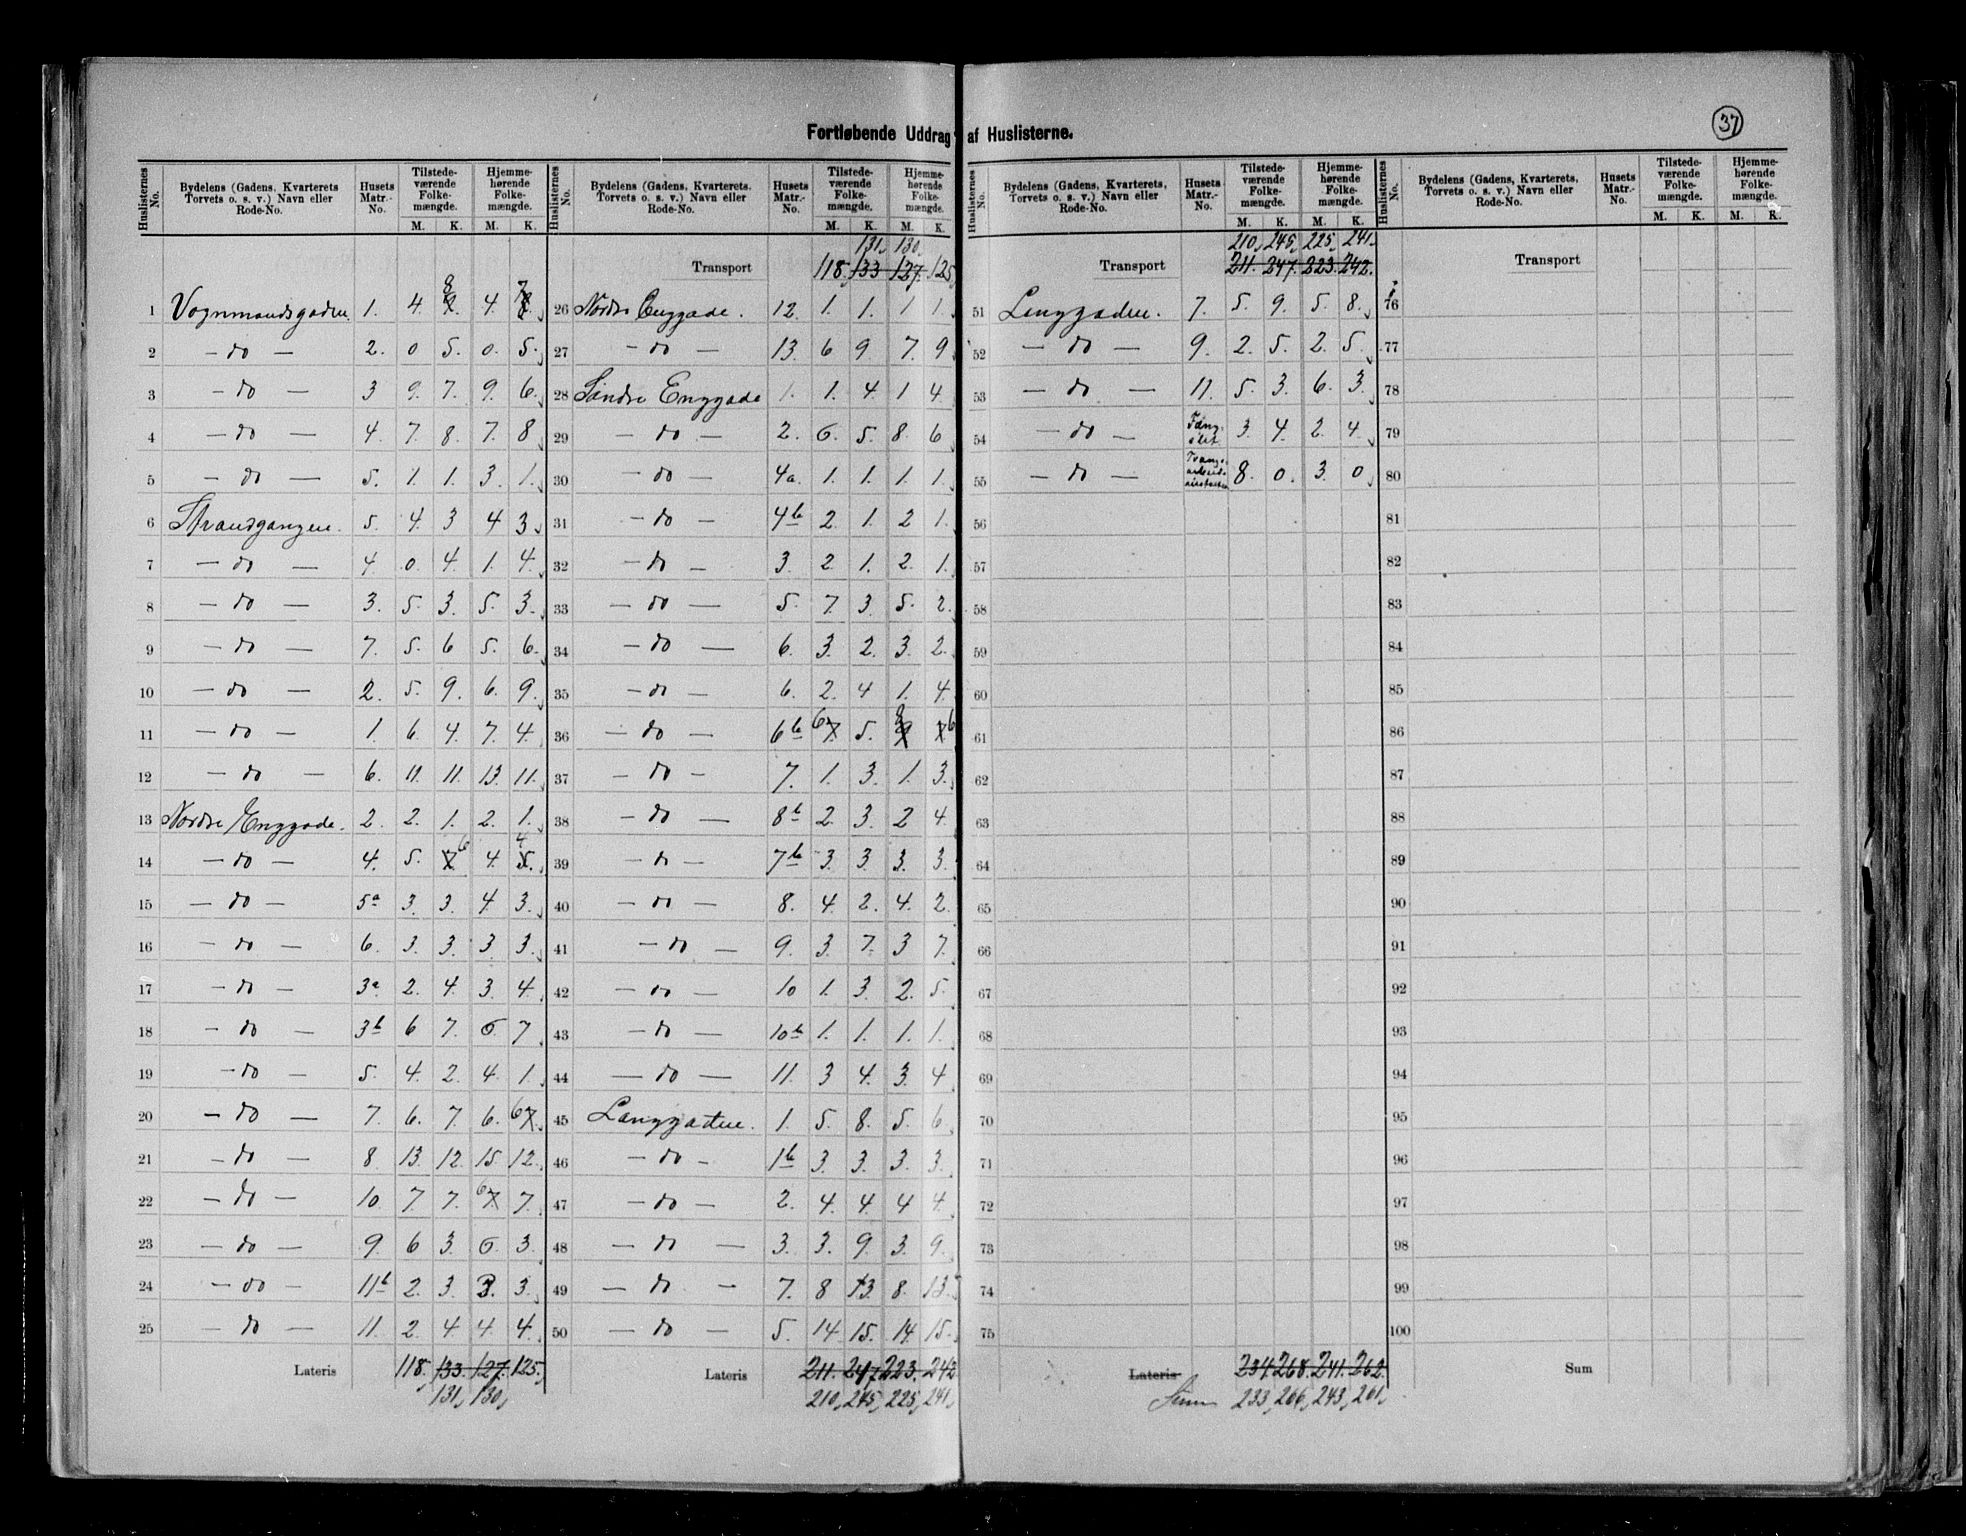 37
Fortløbende Uddrag af Huslisterne.
Huslisternes No. | Bydelens (Gadens, Kvarterets, Torvets o. s. v.) Navn eller Rode-No. | Husets Matr.-No. | Tilstedeværende Folkemængde. M. K. | Hjemmehørende Folkemængde. M. K.
1 Vognmandsgaden. 1. 4. 8 4 7
2 — do — 2. 0 5. 0. 5.
3 — do — 3 9. 7. 9. 6.
4 — do — 4. 7. 8. 7. 8
5 — do — 5. 1. 1. 3. 1.
6 Strandgangen. 5. 4. 3 4 3
7 — do — 4. 0. 4. 1. 4.
8 — do — 3. 5. 3. 5. 3.
9 — do — 7. 5. 6 5. 6.
10 — do — 2. 5. 9. 6. 9.
11 — do — 1. 6. 4. 7. 4.
12 — do — 6. 11. 11. 13. 11.
13 Nordre Enggade. 2. 2. 1. 2. 1.
14 — do — 4. 5. 7 6 4. 5. 4
15 — do — 5a 3. 3. 4 3.
16 — do — 6. 3. 3. 3 3.
17 — do — 3a 2. 4. 3 4.
18 — do — 3b 6 7. 6. 7
19 — do — 5. 4. 2. 4. 1.
20 — do — 7. 6. 7. 6. 6 7.
21 — do — 8. 13. 12. 15. 12.
22 — do — 10. 7. 7. 6 7. 7.
23 — do — 9. 6 3. 6. 3.
24 — do — 11b 2. 3. 3. 3.
25 — do — 11. 2. 4. 4. 4.
Lateris 118. 133. 127. 125.
131, 130,
131, 130,
Transport 118. 133 127. 125
26 Nordre Enggade. 12. 1. 1. 1 1.
27 — do — 13. 6 9. 7. 9.
28 Søndre Enggade 1. 1. 4. 1 4.
29 — do — 2. 6. 5. 8. 6
30 — do — 4a. 1. 1. 1. 1.
31 — do — 4b 2. 1. 2 1.
32 — do — 3. 2. 1. 2. 1.
33 — do — 5. 7. 3. 5. 2.
34 — do — 6. 3. 2. 3. 2.
35 — do — 6. 2. 4 1. 4.
36 — do — 6b 6 7. 5. 8 7 6
37 — do — 7. 1. 3. 1. 3.
38 — do — 8b 2. 3. 2 4.
39 — do — 7b 3. 3 3. 3.
40 — do — 8. 4. 2. 4. 2.
41 — do — 9. 3. 7. 3 7.
42 — do — 10 1. 3. 2. 5.
43 — do — 10b 1. 1. 1. 1.
44 — do — 11. 3 4. 3. 4
45 Langgaden. 1. 5. 8. 5. 6
46 — do — 1b 3. 3. 3. 3.
47 — do — 2. 4. 4. 4 4.
48 — do — 3. 3. 9. 3. 9.
49 — do — 7. 8 13. 8. 13.
50 — do — 5. 14. 15. 14. 15.
Lateris 211. 247. 223. 242
210, 245, 225, 241,
Huslisternes No. | Bydelens (Gadens, Kvarterets, Torvets o. s. v.) Navn eller Rode-No. | Husets Matr.-No. | Tilstedeværende Folkemængde. M. K. | Hjemmehørende Folkemængde. M. K.
210, 245, 225, 241,
Transport 211. 247. 223. 242.
51 Langgaden. 7. 5. 9. 5. 8.
52 — do — 9. 2. 5. 2. 5.
53 — do — 11. 5. 3. 6. 3.
54 — do — 3. 4. 2. 4.
55 — do — 8. 0. 3. 0.
56
57
58
59
60
61
62
63
64
65
66
67
68
69
70
71
72
73
74
75
Lateris 234. 268. 241. 262.
Sum 233, 266, 243, 261,
Transport
76
77
78
79
80
81
82
83
84
85
86
87
88
89
90
91
92
93
94
95
96
97
98
99
100
Sum